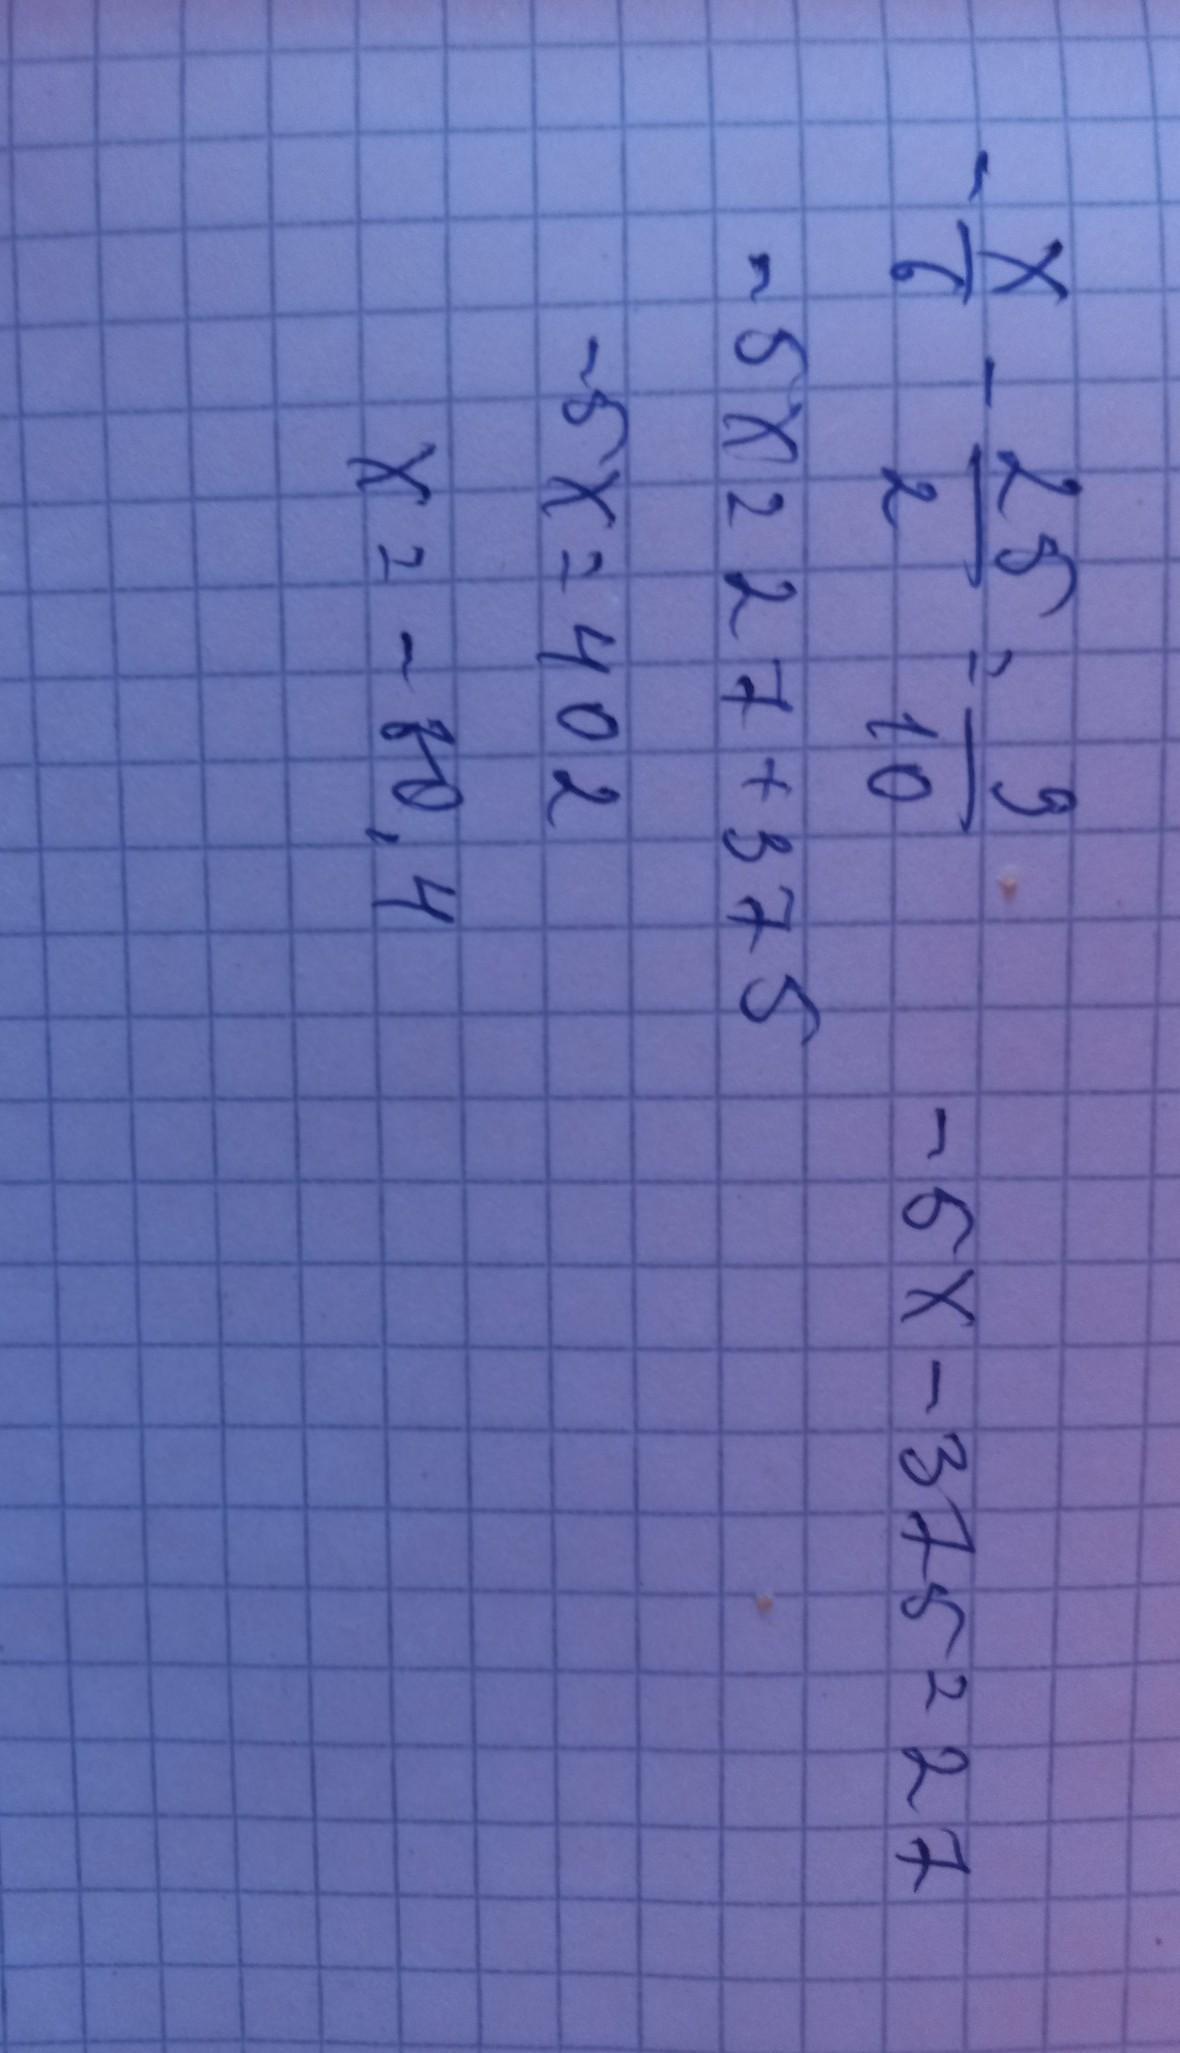 - x/6 - 25/2 = 9/10 -5x - 375 = 27
-5x = 27 + 375
-5x = 402
x = -80,4